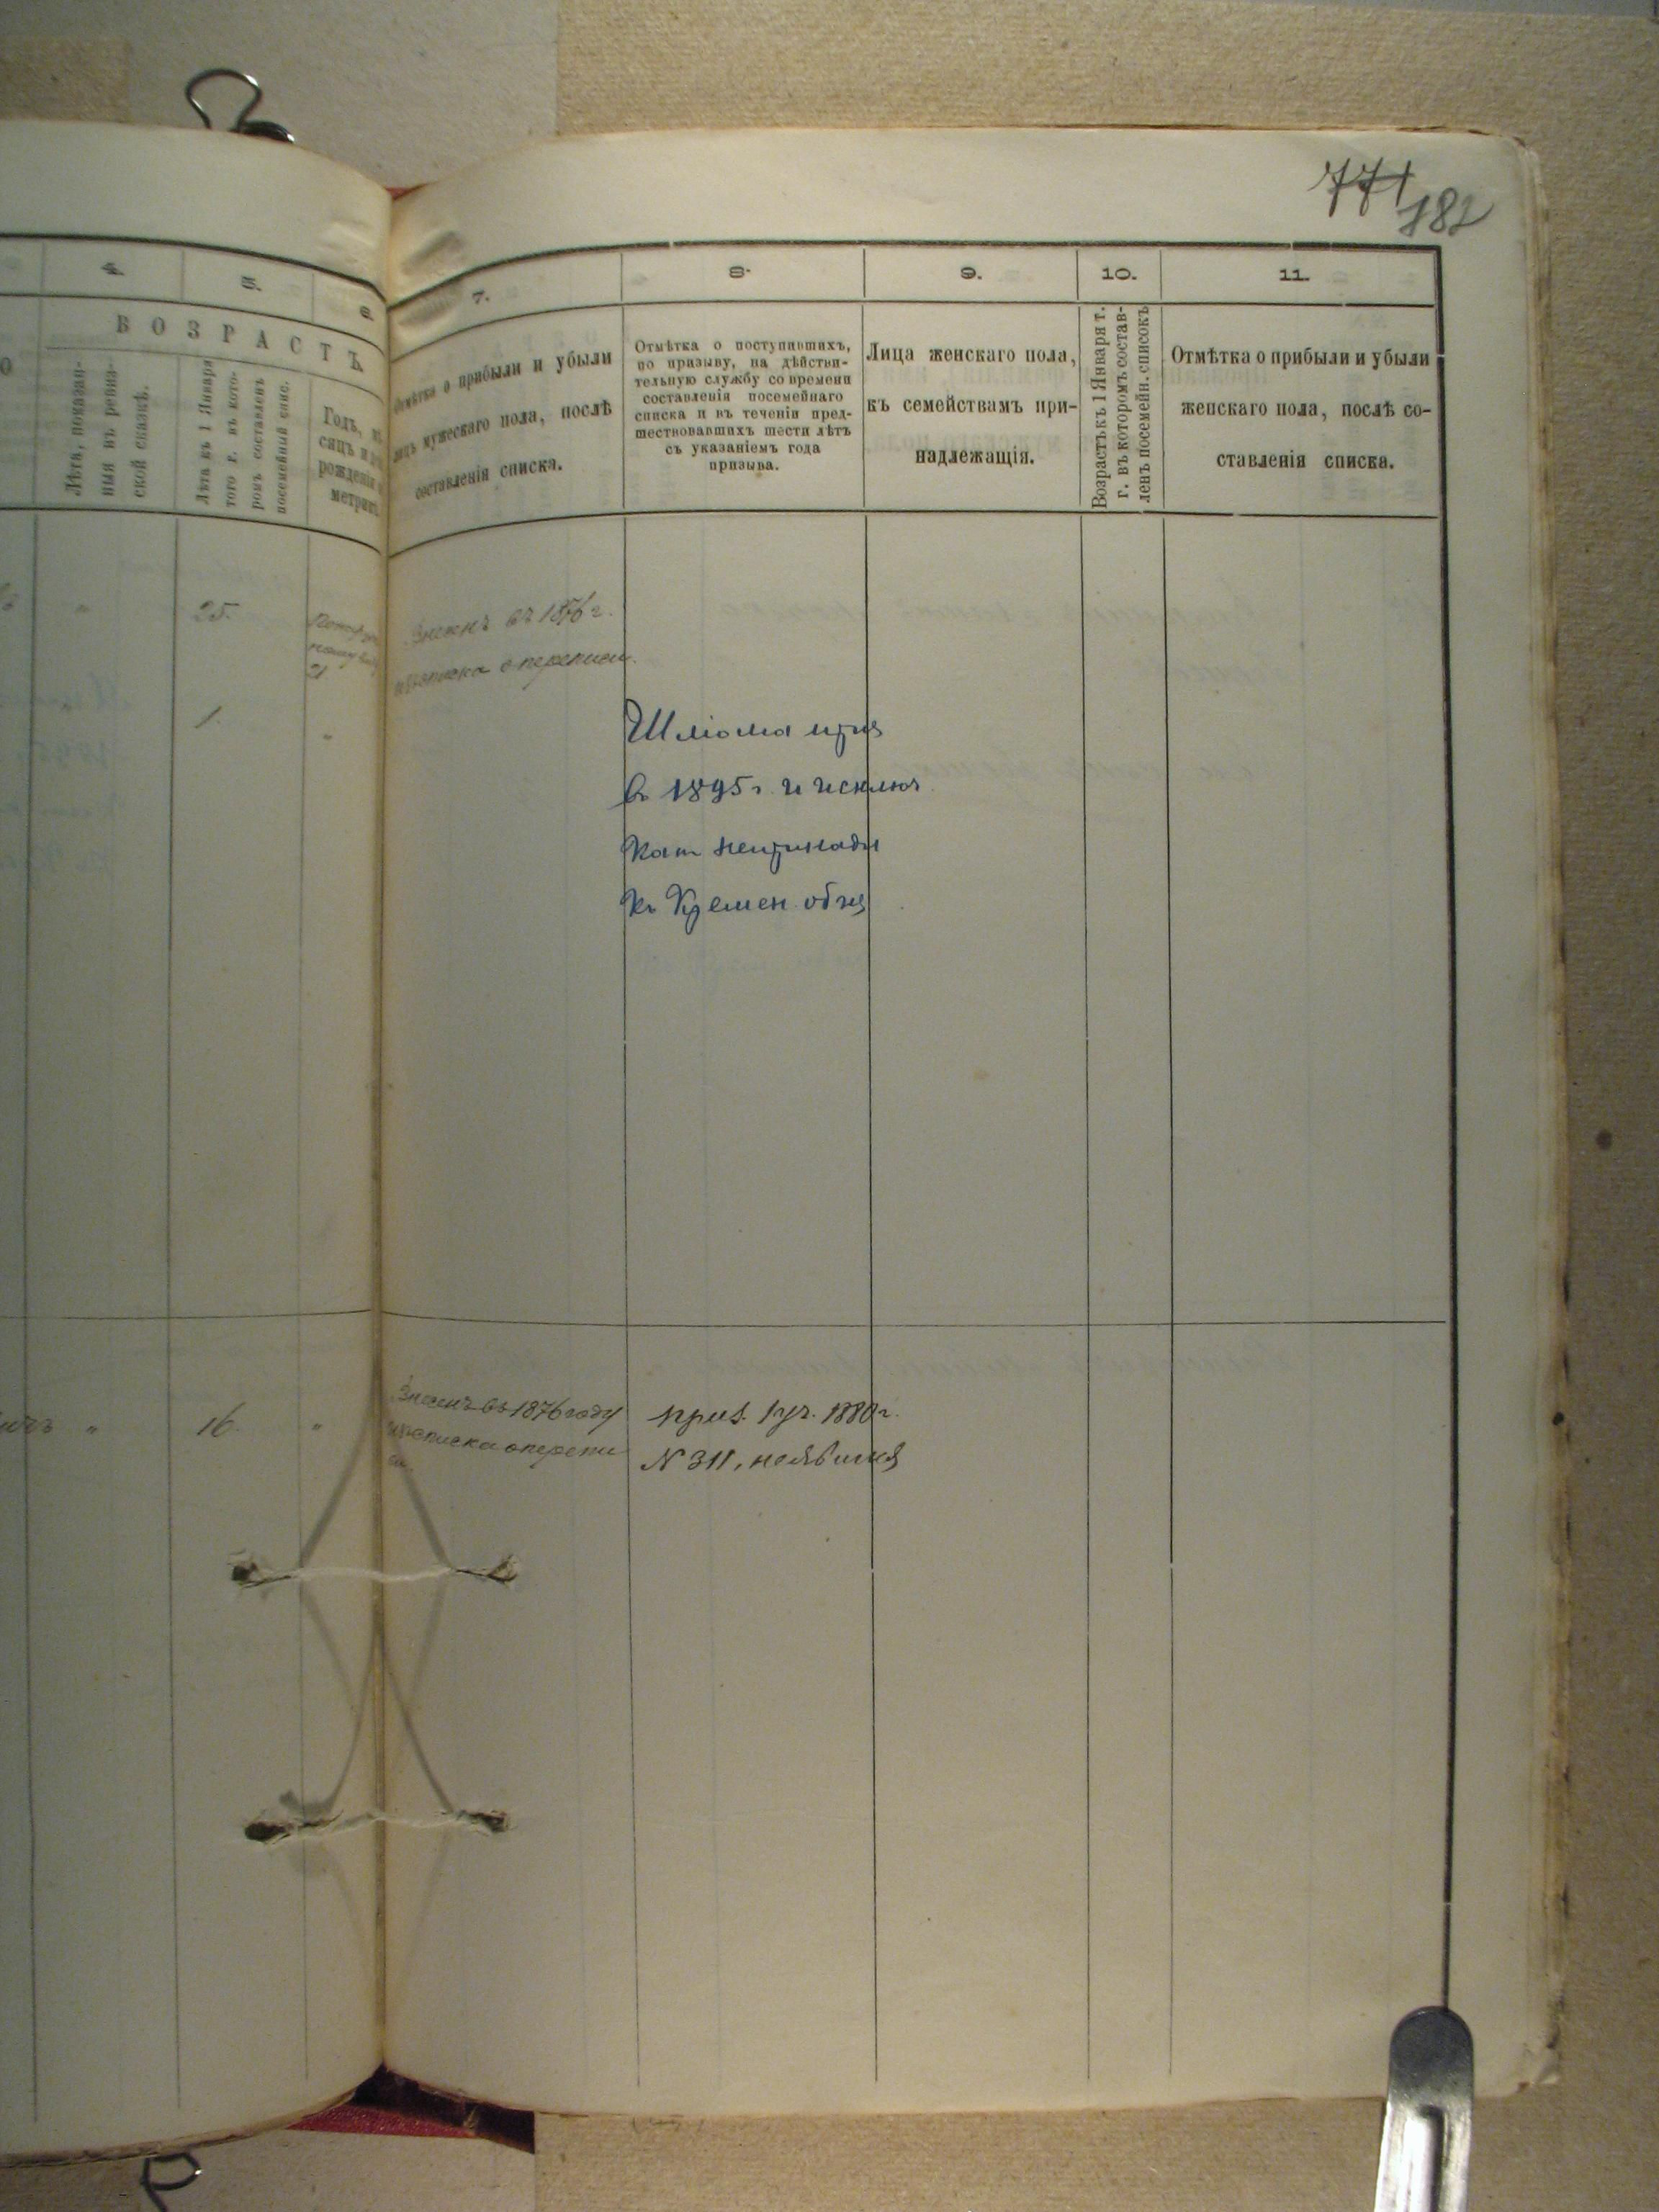 771
182
4.
5.
6.
ВОЗРАСТЪ
Лѣта, показан-
ныя въ ревиз-
ской сказкѣ.
Лѣта къ 1 Января
того г. въ кото-
ромъ составленъ
посемейный спис.
Годъ, мѣ
сяцъ и
рожденія
метрик
25.
21
1.
"
"
16.
"
7.
Отмѣтка о прибыли и убыли
лицъ мужескаго пола, послѣ
составленія списка.
8.
Отмѣтка о поступившихъ,
по призыву, на дѣйстви-
тельную службу со времени
составленія посемейнаго
списка и въ теченіи пред-
шествовавшихъ шести лѣтъ
съ указаніемъ года
призыва.
9.
Лица женскаго пола,
къ семействамъ при-
надлежащія.
10.
Возрастъ къ 1 Января т.
г. въ которомъ состав-
ленъ посемейн. списокъ
11.
Отмѣтка о прибыли и убыли
женскаго пола, послѣ со-
ставленія списка.
Внесенъ въ 1876 г.
о переписи.
Шліома
въ 1895 г. и исключ.
как непринадл
къ Кремен. общ
Внесенъ въ 1876 году
приз. 1 уч. 1880 г.
N 311, неявился